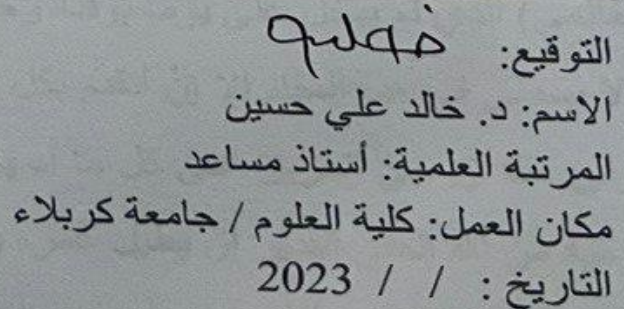 التوقيع:
الاسم: د. خالد علي حسين
المرتبة العلمية: أستاذ مساعد
مكان العمل: كلية العلوم / جامعة كربلاء
التاريخ : / / 2023